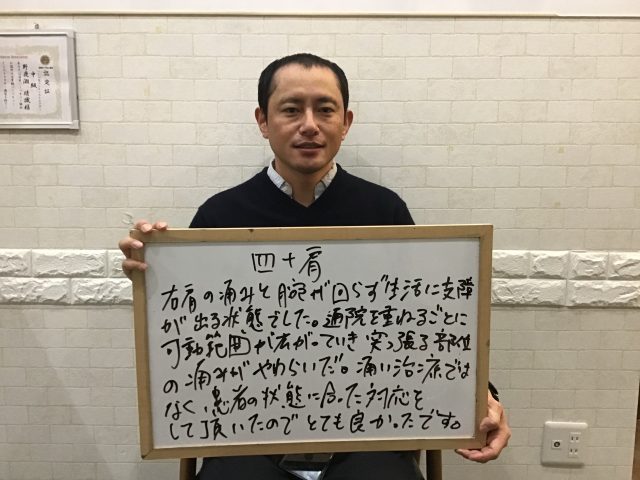 認定証
中級
四十肩
右肩の痛みと腕が回らず生活に支障
が出る状態でした。通院を重ねるごとに
可動範囲が広がっていき突っ張る部位
の痛みがやわらいだ。痛い治療では
なく、患者の状態に合った対応を
して頂いたのでとても良かったです。